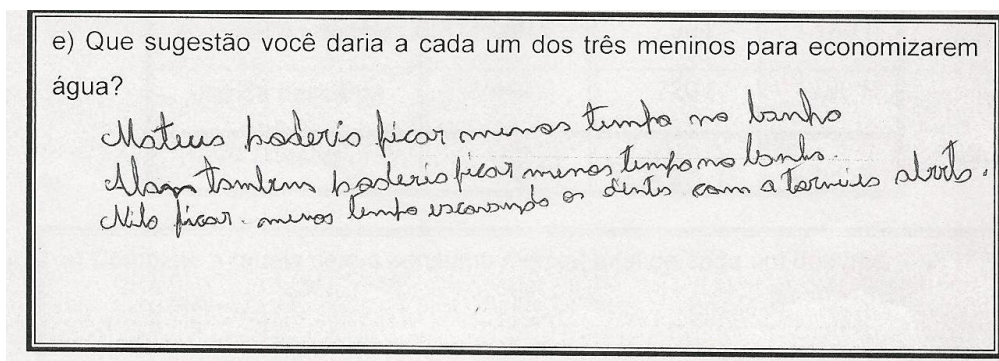 e) Que sugestão você daria a cada um dos três meninos para economizarem
água?
Mateus poderia ficar menos tempo no banho
Alan também poderia ficar menos tempo no banho.
Nilo ficar menos tempo escovando os dentes com a torneira aberta.